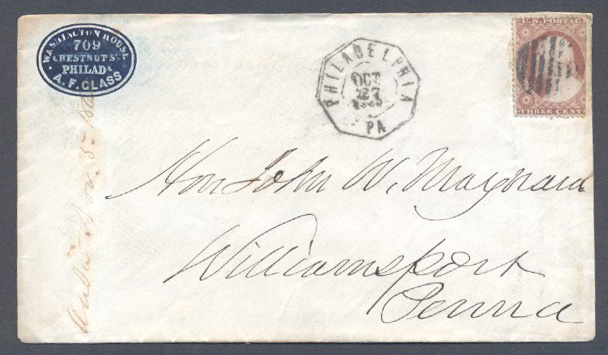 WASHINGTON HOUSE
709
CHESTNUT ST.
PHILADA
A. F. GLASS
PHILADELPHIA
OCT
27
PA
U.S. POSTAGE
THREE CENTS
Hon John W. Maynard
Williamsport
Penna
Nov. 5.